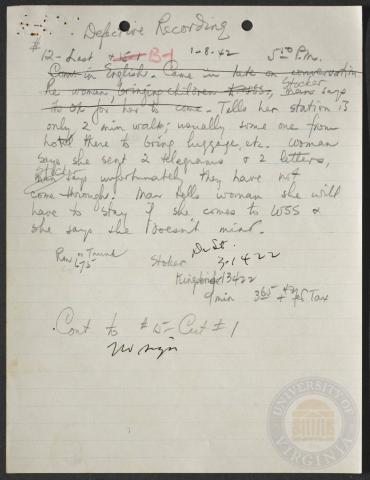 Defective Recording
#12 - Last + 15-1 B-1 1-8-42 5 10 P.m.
Conv in English. Came in late on conversation
Re woman bringing children to WSS, Stoker says
to for her to come. Tells her station is
only 2 min walk; usually some one from
hotel there to bring luggage, etc. Woman
says she sent 2 telegrams & 2 letters,
Stoker says unfortunately they have not
come through. Man tells woman she will
have to stay if she comes to WSS &
she says she doesn't mind.
Rev on Trunk
Stoker
3-1422
Kingbridge 3422
9 min 3 65 + 42 Fed Tax
Cont to #15 - Cut #1
no sign
UNIVERSITY OF
VIRGINIA
1819